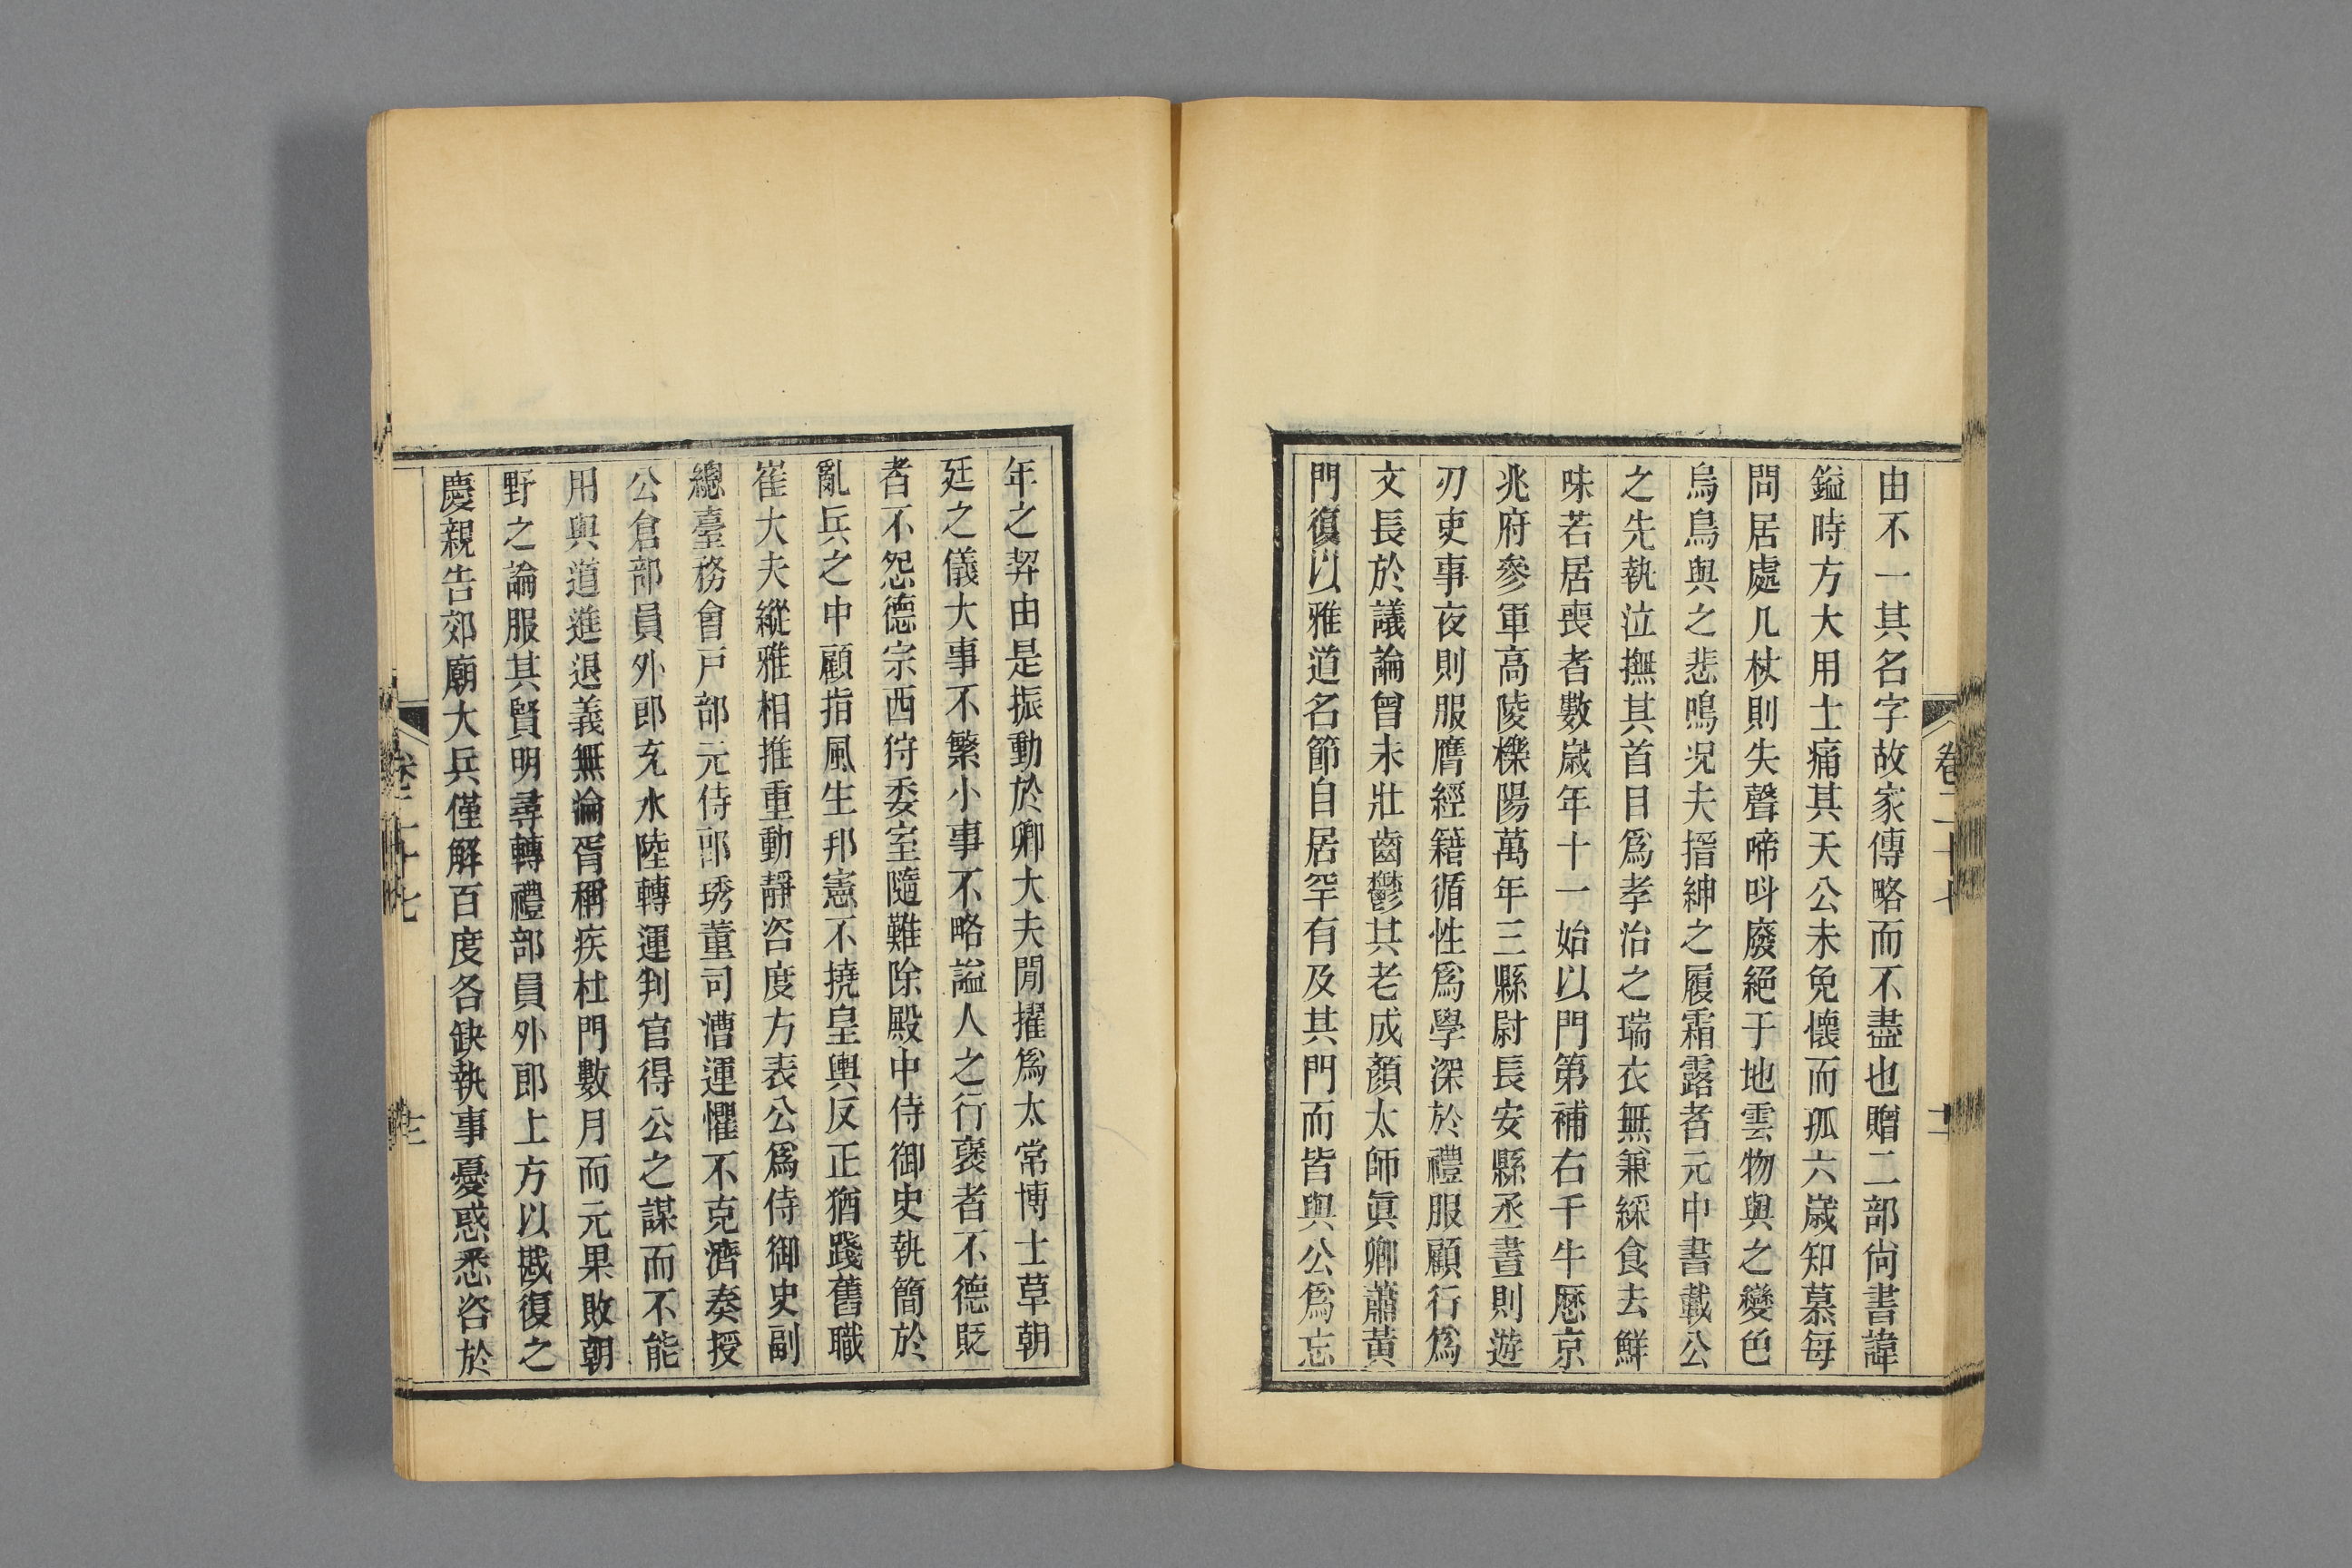 由不一其名字故家傳略而不盡也贈二部尙書諱
鎰時方大用士痛其天公未免懷而孤六歲知慕每
問居處几杖則失聲啼呌廢絕于地雲物與之變色
烏鳥與之悲鳴况夫搢紳之履霜露者元中書載公
之先執泣撫其首目爲孝治之瑞衣無兼綵食去鮮
味若居喪者數歲年十一始以門第補右千牛歷京
兆府參軍高陵櫟陽萬年三縣尉長安縣丞晝則遊
刃吏事夜則服膺經籍循性爲學深於禮服顧行爲
文長於議論曾未壯齒鬱其老成顏太師眞卿蕭黃
門復以雅道名節自居罕有及其門而皆與公爲忘
卷二十七
十二
年之契由是振動於卿大夫閒擢爲太常博士草朝
廷之儀大事不繁小事不略謚人之行襃者不德貶
者不怨德宗西狩委室隨難除殿中侍御史執簡於
亂兵之中顧指風生邦憲不撓皇輿反正猶踐舊職
崔大夫縱雅相推重動靜咨度方表公爲侍御史副
總臺務會戸部元侍郎琇董司漕運懼不克濟奏授
公倉部員外郎充水陸轉運判官得公之謀而不能
用與道進退義無淪胥稱疾杜門數月而元果敗朝
野之論服其賢明尋轉禮部員外郎上方以戡復之
慶親告郊廟大兵僅解百度各缺執事憂惑悉咨於
卷二十七